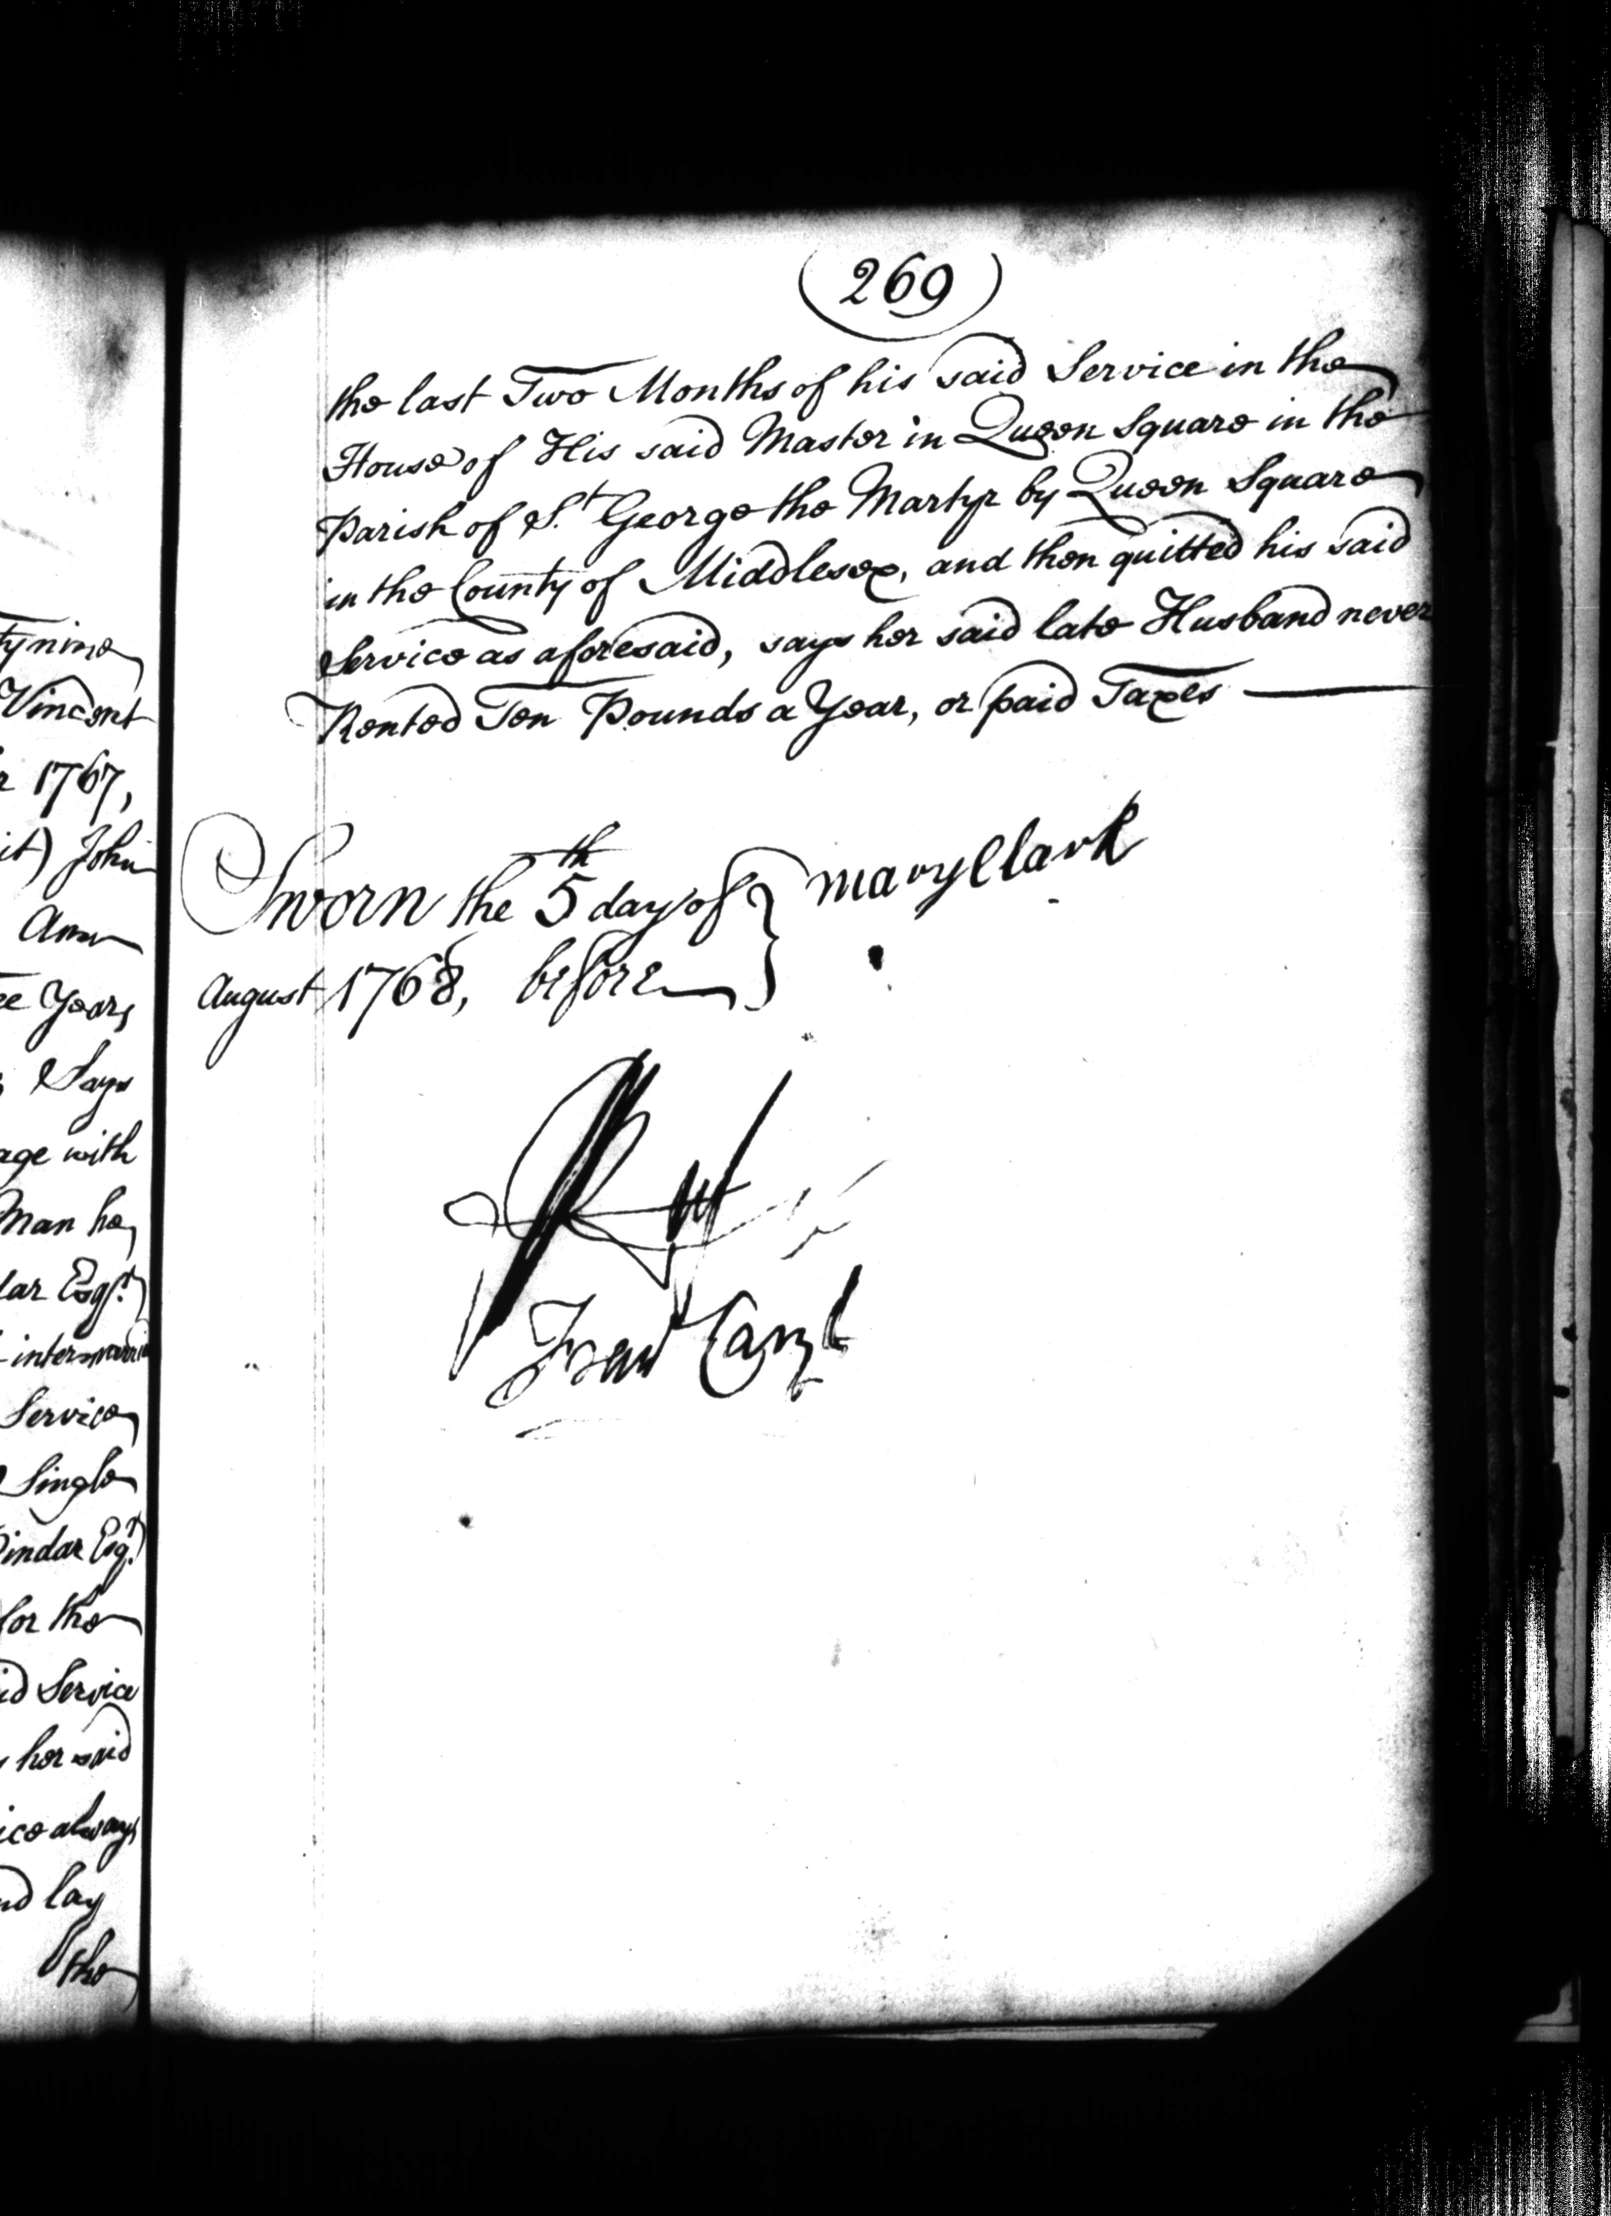 tynine
Vincent
r 1767,
it) John
Ann
ee Years
Says
age with
Man he
lar Esqr.
intermarried
Service
Single
Pindar Esqr.
for the
id Service
her said
ice always
nd lay
the
(269)
the last Two Months of his said Service in the
House of His said Master in Queen Square in the
Parish of St. George the Martyr by Queen Square
in the County of Middlesex, and then quitted his said
Service as aforesaid, says her said late Husband never
Rented Ten Pounds a Year, or paid Taxes
Sworn the 5th day of
August 1768, before
Mary Clark